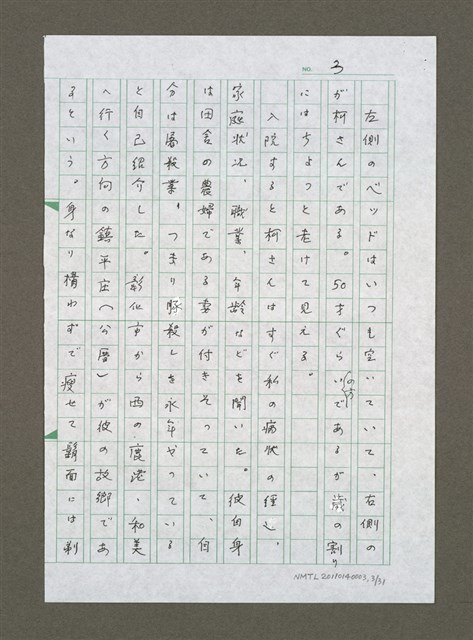 NO. 3
左側のベッドはいつも空いていて、右側の
が柯さんである。50才ぐらい(の方)であるが歳の割り
にはちょっと老けて見える。
入院すると柯さんはすぐ私の病状の経過、
家庭状況、職業、年齢などを聞いた。彼自身
は田舎の農婦である妻が付きそっていて、自
分は屠殺業、つまり豚殺しを永年やっている
と自己紹介した。彰化市から西の鹿港、和美
へ行く方向の鎮平庄(公厝)が彼の故郷であ
るという。身なり構わずで痩せて鬍面には剃
NMTL20110140003,3/31